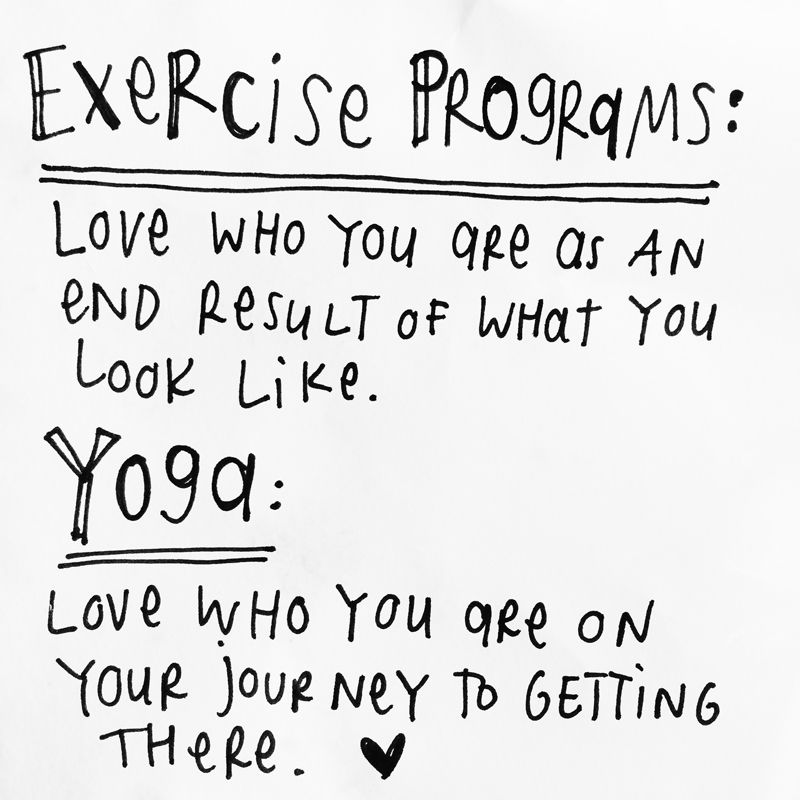 Exercise Programs:
Love who you are as an
end result of what you
look like.
Yoga:
Love who you are on
your journey to getting
there.